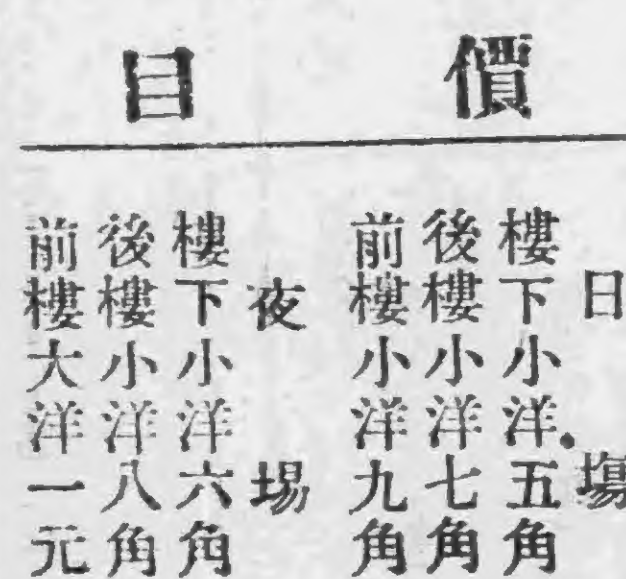 價目
日場
樓下小洋五角
後樓小洋七角
前樓小洋九角
夜場
樓下小洋六角
後樓小洋八角
前樓大洋一元